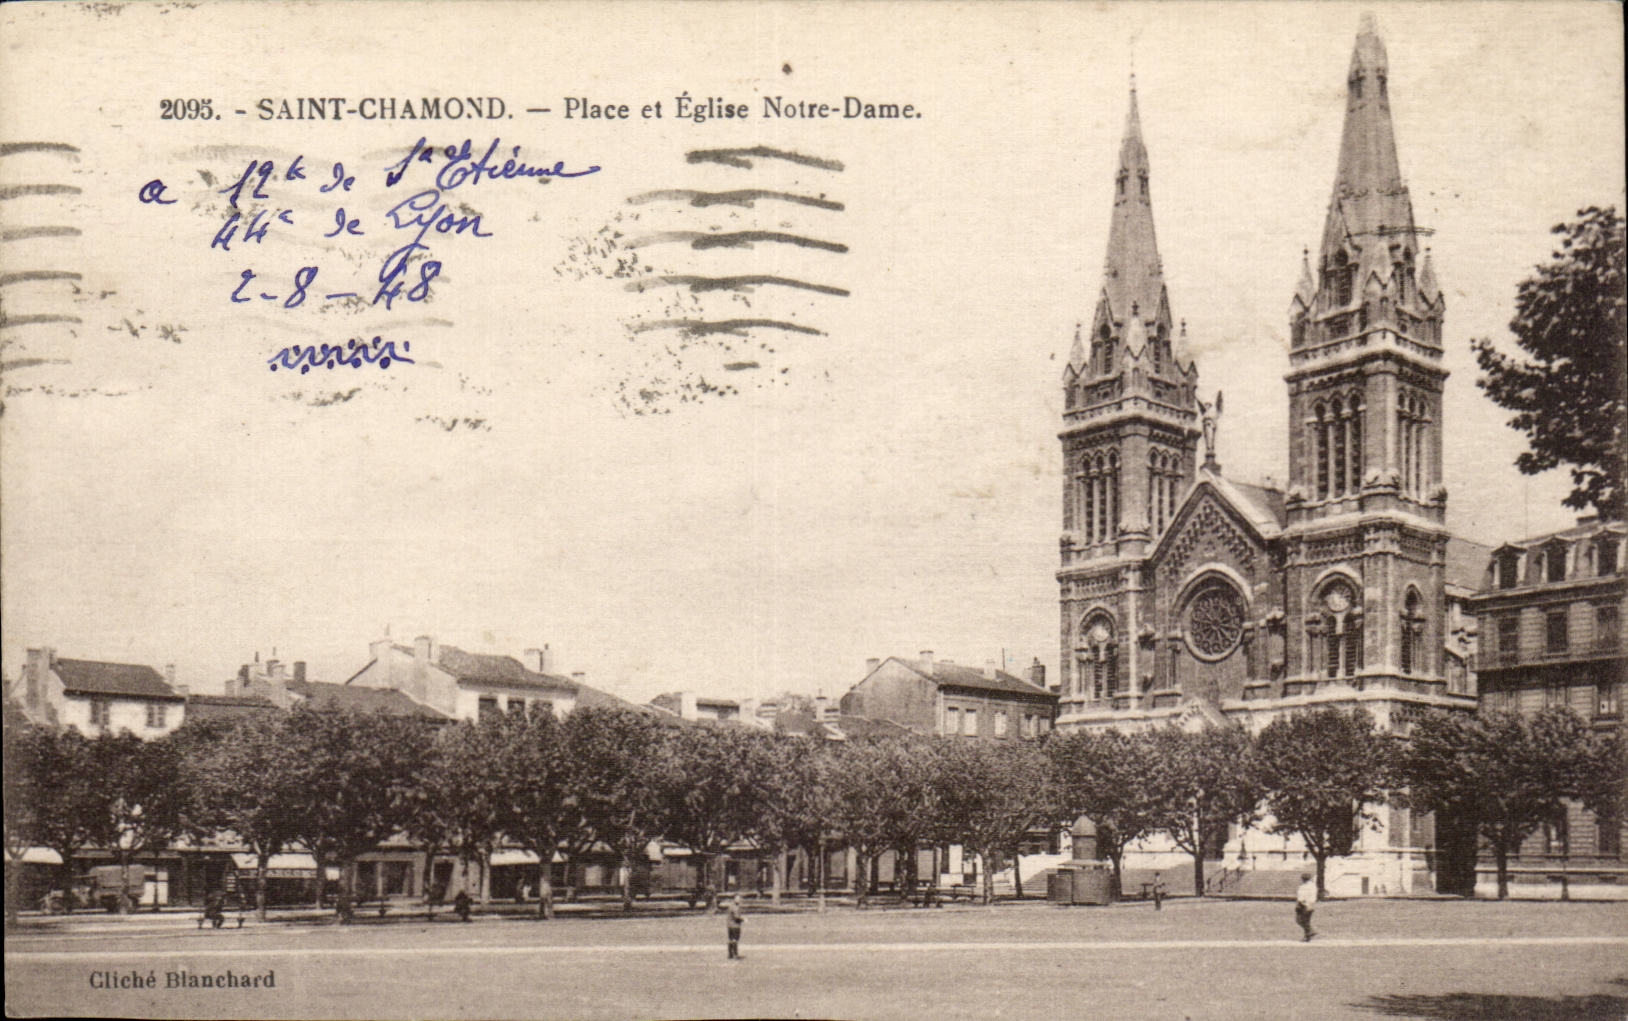 2095. - SAINT-CHAMOND. — Place et Église Notre-Dame.
a 12k de St Etiénne
44k de Lyon
2-8-48
Cliché Blanchard